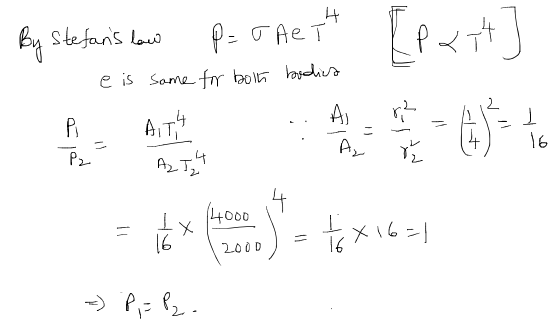 By Stefan's law P = σAeT⁴ [P ∝ T⁴]
e is same for both bodies
P₁/P₂ = A₁T₁⁴/A₂T₂⁴ ∵ A₁/A₂ = r₁²/r₂² = (1/4)² = 1/16
= 1/16 × (4000/2000)⁴ = 1/16 × 16 = 1
⇒ P₁ = P₂.